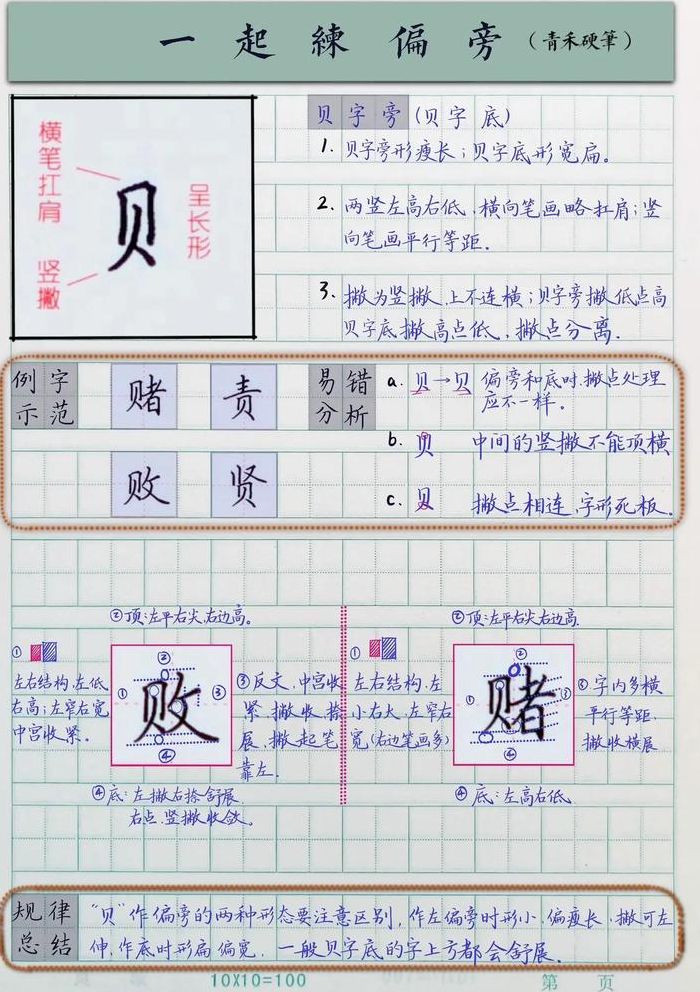 一起練偏旁（青禾硬筆）
横笔扛肩
呈长形
竖撇
贝
贝字旁(贝字底)
1. 贝字旁形瘦长；贝字底形宽扁。
2. 两竖左高右低，横向笔画略扛肩；竖
向笔画平行等距.
3. 撇为竖撇，上不连横；贝字旁撇低点高
贝字底撇高点低，撇点分离.
例字
示范
赌 责
败 贤
易错
分析
a. 贝→贝 偏旁和底时，撇点处理
应不一样。
b. 贝 中间的竖撇不能顶横
c. 贝 撇点相连，字形死板.
②顶:左平右尖,右边高。
①
左右结构,左低
右高;左窄右宽
中宫收紧。
败
① ② ③ ④
③反文,中宫收
紧,撇收捺
展,撇起笔
靠左.
④底:左撇右捺舒展.
右点.竖撇收敛。
②顶:左平右尖右边高.
①
左右结构,左
小右大,左窄右
宽(右边笔画多)
赌
① ② ③ ④
③字内多横
平行等距.
撇收横展
④底:左高右低.
规律
总结
“贝”作偏旁的两种形态要注意区别，作左偏旁时形小.偏瘦长,撇可左
伸,作底时形扁偏宽，一般贝字底的字上方都会舒展.
10X10=100
第 页